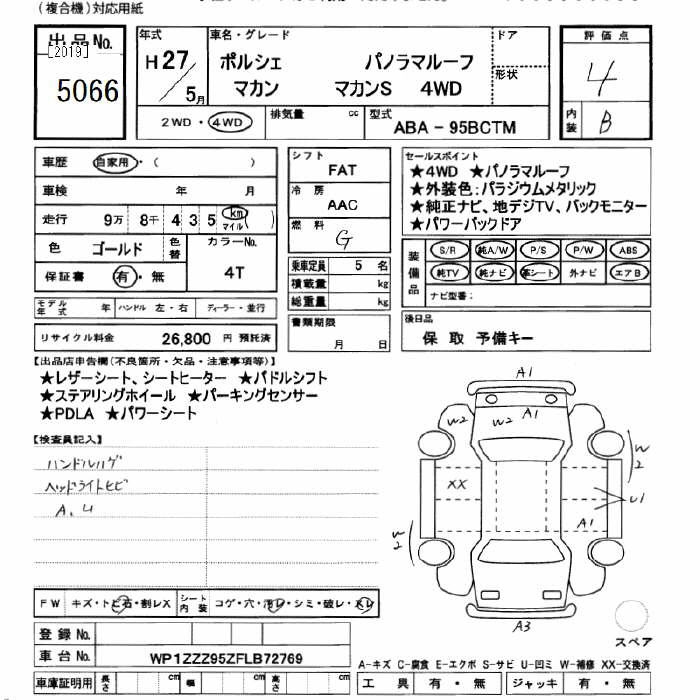 (複合機)対応用紙
出品No.
[2019]
5066
年式
H27/5月
車名・グレード
ポルシェ パノラマルーフ
マカン マカンS 4WD
ドア
形状
評価点
4
内装
B
2WD・4WD
排気量 cc
型式
ABA - 95BCTM
車歴 自家用・( )
車検 年 月
走行 9万 8千 4 3 5 km マイル ( )
色 ゴールド 色替
カラーNo.
4T
保証書 有・無
シフト
FAT
冷房
AAC
燃料
G
乗車定員 5 名
積載量 kg
総重量 kg
セールスポイント
★4WD ★パノラマルーフ
★外装色:パラジウムメタリック
★純正ナビ、地デジTV、バックモニター
★パワーバックドア
装備品
S/R 純A/W P/S P/W ABS
純TV 純ナビ 革シート 外ナビ エアB
ナビ型番:
モデル年式 年 ハンドル 左・右 ディーラー・並行
リサイクル料金 26,800 円 預託済
書類期限
月 日
後日品
保 取 予備キー
【出品店申告欄(不良箇所・欠品・注意事項等)】
★レザーシート、シートヒーター ★パドルシフト
★ステアリングホイール ★パーキングセンサー
★PDLA ★パワーシート
【検査員記入】
ハンドルハゲ
ヘッドライトヒビ
A.U
A1
W2
W2
A1
W2
XX
U1
A1
W2
A3
スペア
FW キズ・トビ石・割レX
シート内装 コゲ・穴・汚レ・シミ・破レ・スレ
登録No.
車台No. WP1ZZZ95ZFLB72769
車庫証明用 長さ cm 幅 cm 高さ cm
A-キズ C-腐食 E-エクボ S-サビ U-凹ミ W-補修 XX-交換済
工具 有・無 ジャッキ 有・無